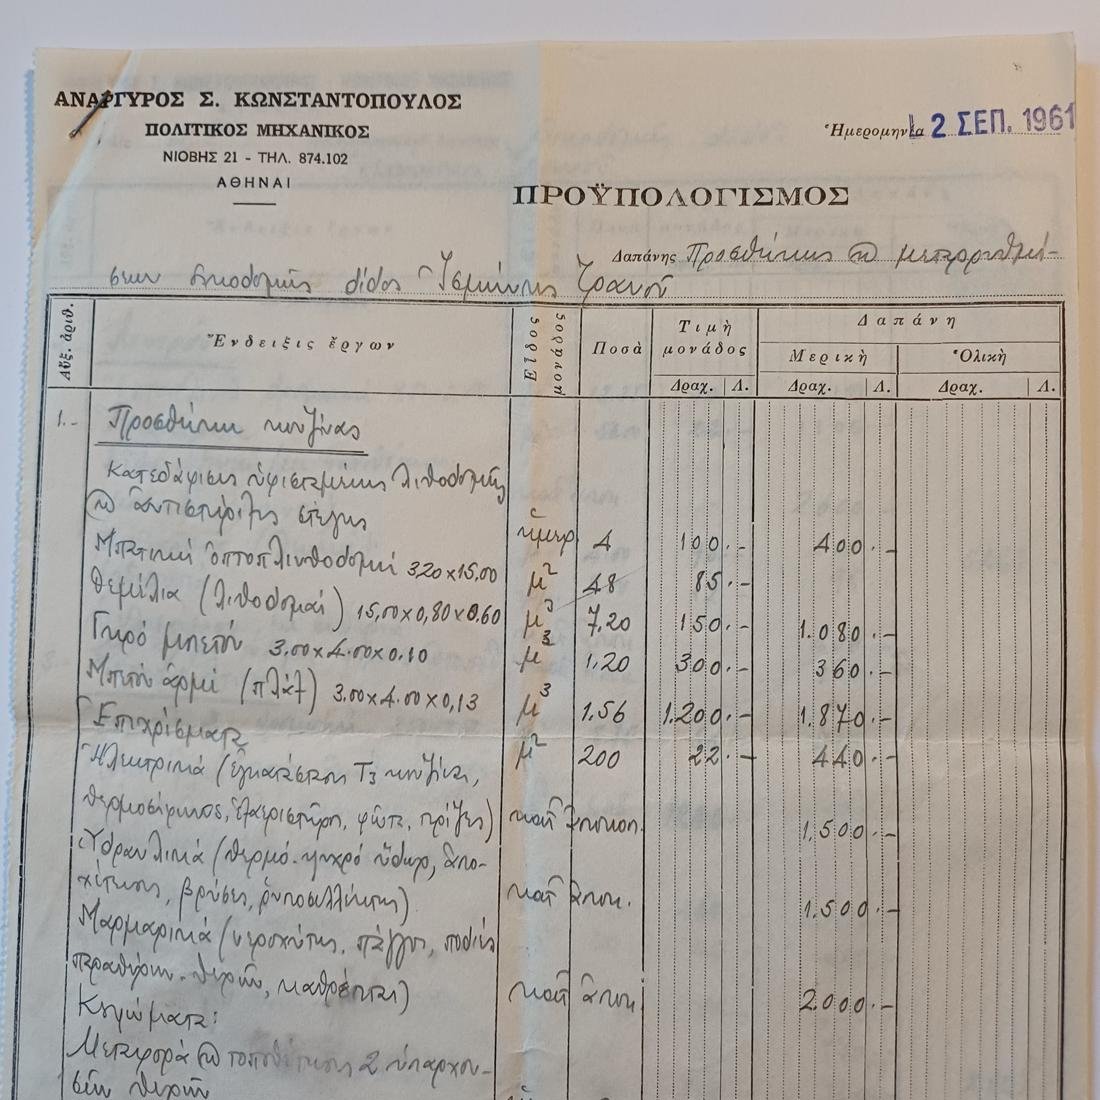 ΑΝΑΡΓΥΡΟΣ Σ. ΚΩΝΣΤΑΝΤΟΠΟΥΛΟΣ
ΠΟΛΙΤΙΚΟΣ ΜΗΧΑΝΙΚΟΣ
ΝΙΟΒΗΣ 21 - ΤΗΛ. 874.102
ΑΘΗΝΑΙ
Ἡμερομηνία 2 ΣΕΠ. 1961
ΠΡΟΫΠΟΛΟΓΙΣΜΟΣ
Δαπάνης Προσθήκης καὶ μεταρρυθμί-
σεων οἰκοδομῆς δίδος Ἰσμήνης
Αὔξ. ἀριθ. Ἔνδειξις ἔργων Εἶδος μονάδος Ποσὰ Τιμὴ μονάδος Δαπάνη
Μερικὴ Ὁλικὴ
Δραχ. Λ. Δραχ. Λ. Δραχ. Λ.
1.- Προσθήκη κουζίνας
Κατεδάφισις ὑφισταμένης λιθοδομῆς
καὶ ἀντιστήριξις στέγης ἡμερ. 4 100.- 400.-
Μπατική ὀπτοπλινθοδομή 3,20x15,00 μ² 48 85.-
Θεμέλια (λιθοδομαί) 15,00x0,80x0.60 μ³ 7,20 150.- 1.080.-
Γκρό μπετόν 3.00x4.00x0.10 μ³ 1,20 300.- 360.-
Μπετόν ἀρμέ (πλάκα) 3.00x4.00x0,13 μ³ 1.56 1.200.- 1.870.-
Ἐπιχρίσματα μ² 200 22.- 440.-
Ἠλεκτρικά (ἐγκατάστασις Τ3 κουζίνας,
θερμοσίφωνος, ἐξαεριστήρος, φῶτα, πρίζες) κατ' ἀποκοπ. 1.500.-
Ὑδραυλικά (θερμό-ψυχρό ὕδωρ, ἀπο-
χέτευσις, βρύσες, ) κατ' ἀποκ. 1.500.-
Μαρμαρικά (νεροχύτης, πάγκος, ποδιές
παραθύρων-θυρῶν, ) κατ' ἀποκ. 2000.-
Κουφώματα:
Μεταφορά καὶ τοποθέτησις 2 ὑπαρχου-
σῶν θυρῶν